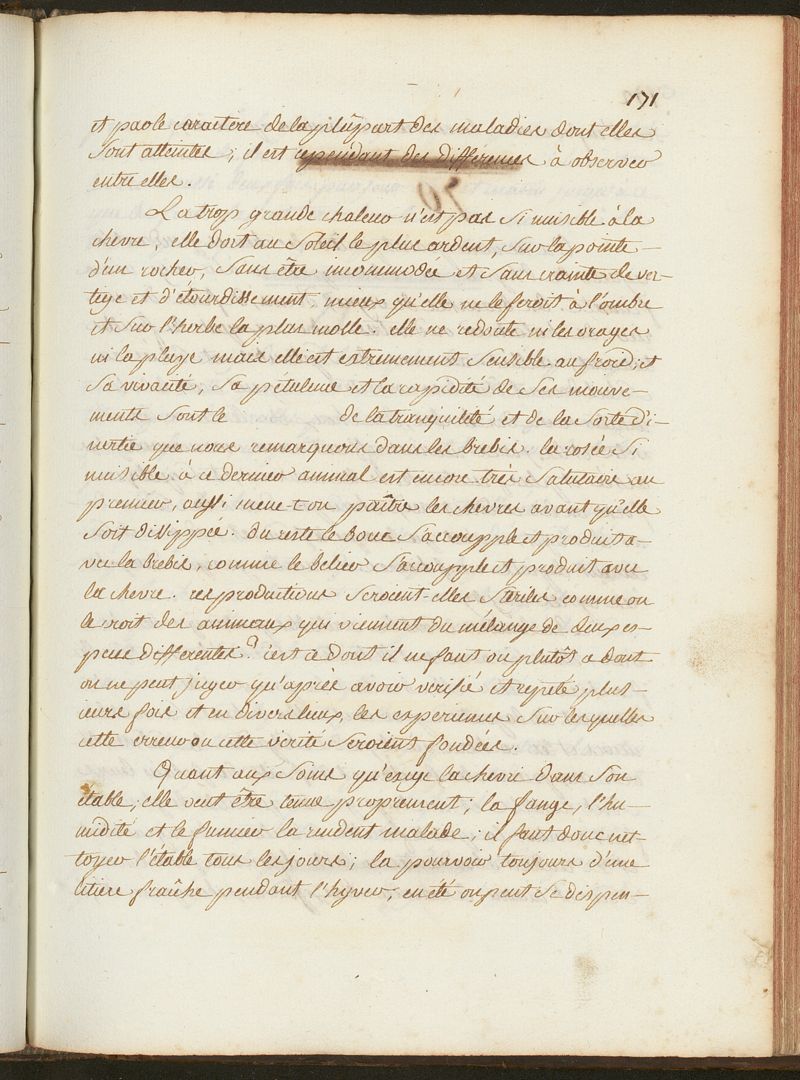 171
et par le caractere de la plûpart des maladies dont elles
sont atteintes ; il est cependant des differences à observer
entre elles.
La trop grande chaleur n'est pas si nuisible à la
chevre, elle dort au Soleil le plus ardent, sur la pointe
d'un rocher, sans être incommodée et sans crainte de ver-
tige et d'étourdissement, mieux qu'elle ne le feroit à l'ombre
et sur l'herbe la plus molle. elle ne redoute ni les orages
ni la pluye mais elle est extremement sensible au froid ; et
sa vivacité, sa pétulence et la rapidité de ses mouve-
ments sont le de la tranquilité et de la sorte d'i-
nertie que nous remarquons dans les brebis. la rosée si
nuisible à ce dernier animal est encore très salutaire au
premier, aussi mene-t-on paître les chevres avant qu'elle
soit dissippée. du reste le bouc s'accoupple et produit a-
vec la brebis, comme le belier s'accoupple et produit avec
la chevre. ces productions seroient-elles stériles comme on
le croit des animaux qui viennent du mélange de deux es-
peces differentes ? c'est ce dont il ne faut ou plutôt ce dont
on ne peut juger qu'après avoir verifié et repeté plus-
ieurs fois et en divers lieux, les experiences sur lesquelles
cette erreur ou cette verité seroient fondées.
Quant aux soins qu'exige la chevre dans son
étable, elle veut être tenue proprement ; la fange, l'hu-
midité et le fumier la rendent malade ; il faut donc net-
toyer l'étable tous les jours ; la pourvoir toujours d'une
litiere fraîche pendant l'hyver ; en été on peut se dispen-